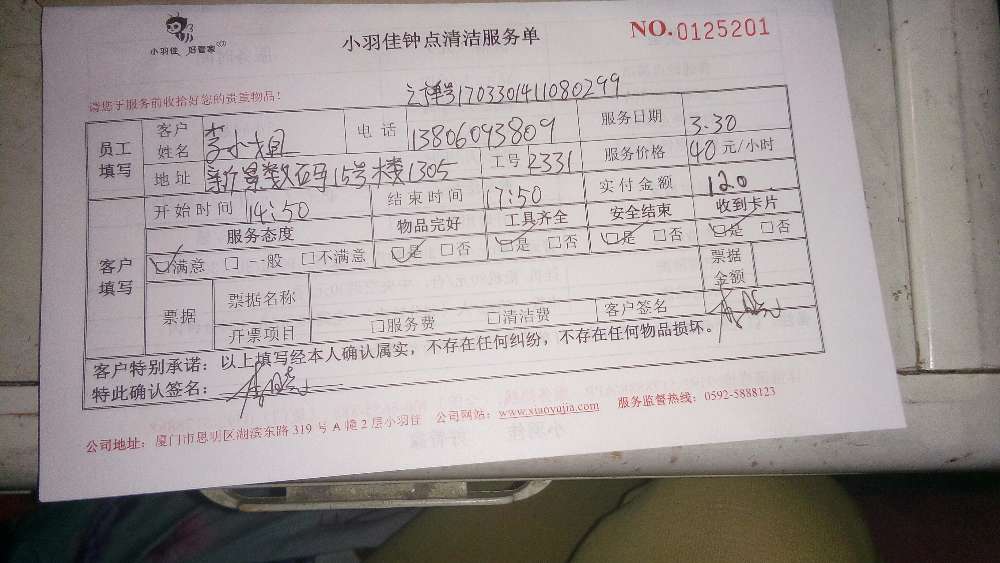 小羽佳 好管家
小羽佳钟点清洁服务单
NO.0125201
请您于服务前收拾好您的贵重物品!
1703301411080299
员工填写
客户姓名 李小姐 电话 13806093809 服务日期 3.30
地址 新景数码15号楼1305 工号 2331 服务价格 40元/小时
客户填写
开始时间 14:50 结束时间 17:50 实付金额 120
服务态度 物品完好 工具齐全 安全结束 收到卡片
☑满意 □一般 □不满意 ☑是 □否 ☑是 □否 ☑是 □否 ☑是 □否
票据 票据名称 票据金额
开票项目 □服务费 □清洁费 客户签名
客户特别承诺：以上填写经本人确认属实，不存在任何纠纷，不存在任何物品损坏。
特此确认签名：
公司地址：厦门市思明区湖滨东路319号A幢2层小羽佳 公司网站：www.xiaoyujia.com 服务监督热线：0592-5888123